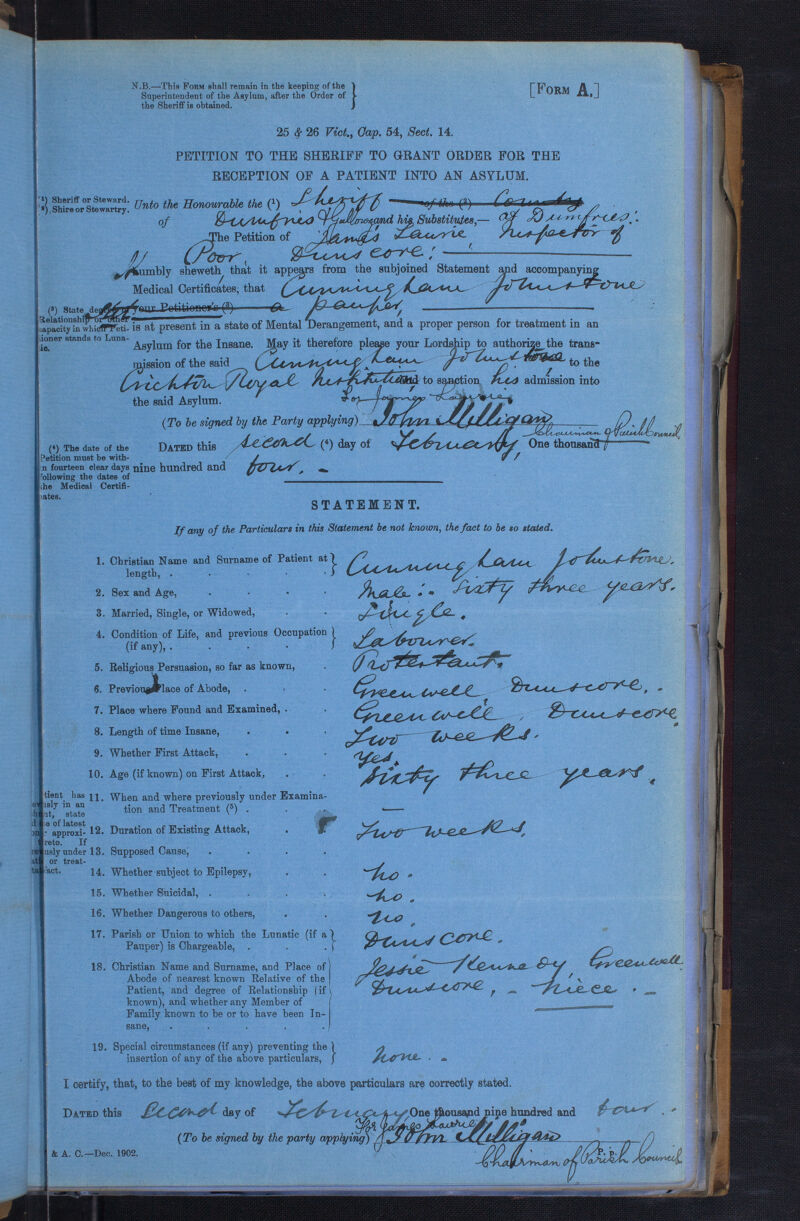 N.B.—This Form shall remain in the keeping of the
Superintendent of the Asylum, after the Order of
the Sheriff is obtained.
[Form A.]
25 & 26 Vict., Cap. 54, Sect. 14.
PETITION TO THE SHERIFF TO GRANT ORDER FOR THE
RECEPTION OF A PATIENT INTO AN ASYLUM.
(1) Sheriff or Steward.
(2) Shire or Stewartry.
Unto the Honourable the (1) Sheriff of the (2) County
of Dumfries & Galloway and his Substitutes,— of Dumfries.
The Petition of James Laurie, Inspector of
Poor, Dunscore.
Humbly sheweth, that it appears from the subjoined Statement and accompanying
Medical Certificates, that Cunningham Johnstone
(3) State degree of
Relationship or other
capacity in which Peti-
tioner stands to Luna-
tic.
your Petitioner's (3) a pauper,
is at present in a state of Mental Derangement, and a proper person for treatment in an
Asylum for the Insane. May it therefore please your Lordship to authorize the trans-
mission of the said Cunningham Johnstone to the
Crichton Royal Institution, and to sanction his admission into
the said Asylum.
For James Laurie,
(To be signed by the Party applying) John Milligan
Chairman of Parish Council.
(4) The date of the
Petition must be with-
in fourteen clear days
following the dates of
the Medical Certifi-
cates.
Dated this second (4) day of February, One thousand
nine hundred and four. -
STATEMENT.
If any of the Particulars in this Statement be not known, the fact to be so stated.
1. Christian Name and Surname of Patient at
length, . Cunningham Johnstone.
2. Sex and Age, Male :. Sixty three years.
3. Married, Single, or Widowed, Single.
4. Condition of Life, and previous Occupation
(if any), . Labourer.
5. Religious Persuasion, so far as known, Protestant.
6. Previous Place of Abode, . Greenwell, Dunscore. .
7. Place where Found and Examined, . Greenwell, Dunscore
8. Length of time Insane, Two weeks.
9. Whether First Attack, Yes.
10. Age (if known) on First Attack, Sixty three years.
11. When and where previously under Examina-
tion and Treatment (5) . —
12. Duration of Existing Attack, Two weeks.
13. Supposed Cause,
14. Whether subject to Epilepsy, No.
15. Whether Suicidal, . No.
16. Whether Dangerous to others, No.
17. Parish or Union to which the Lunatic (if a
Pauper) is Chargeable, . Dunscore.
18. Christian Name and Surname, and Place of
Abode of nearest known Relative of the
Patient, and degree of Relationship (if
known), and whether any Member of
Family known to be or to have been In-
sane, .
Jessie Kennedy, Greenwell
Dunscore, - Niece. -
19. Special circumstances (if any) preventing the
insertion of any of the above particulars, None. -
tient has
usly in an
state
of latest
approxi-
reto. If
usly under
or treat-
fact.
I certify, that, to the best of my knowledge, the above particulars are correctly stated.
Dated this Second day of February One thousand nine hundred and four. .
For James Laurie
(To be signed by the party applying) John Milligan
Chairman of Parish Council
& A. C.—Dec. 1902.
P.P.